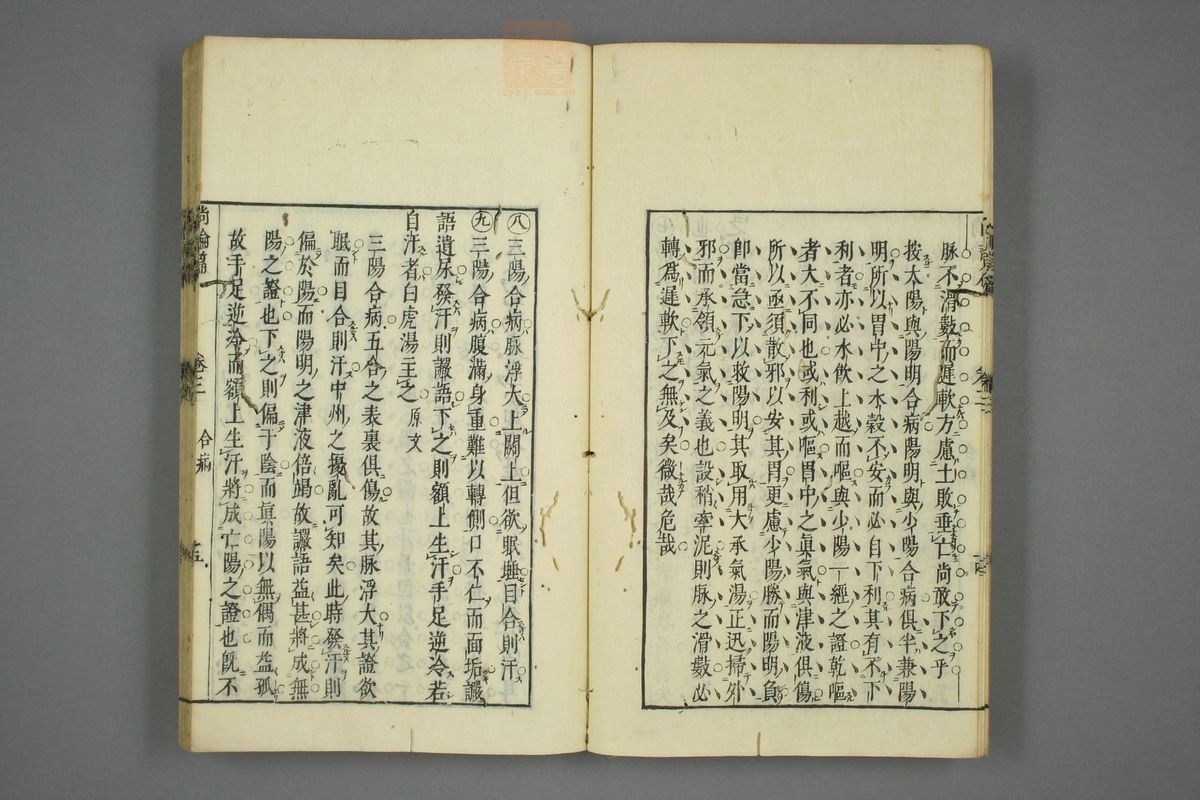 脉不滑數而遲軟方慮土敗垂亡尚敢下之乎
按太陽與陽明合病陽明與少陽合病俱半兼陽
明所以胃中之水穀不安而必自下利其有不下
利者亦必水飲上越而嘔與少陽一經之證乾嘔
者大不同也或利或嘔胃中之眞氣與津液俱傷
所以亟須散邪以安其胃更慮少陽勝而陽明負
卽當急下以救陽明其取用大承氣湯正迅掃外
邪而承領元氣之義也設稍牽泥則脉之滑數必
轉爲遲軟下之無及矣微哉危哉
八三陽合病脉浮大上關上但欲眠埀目合則汗
九三陽合病腹滿身重難以轉側口不仁而面垢讝
語遺尿發汗則讝語下之則額上生汗手足逆冷若
自汗者白虎湯主之 原文
三陽合病五合之表裏俱傷故其脉浮大其證欲
眠而目合則汗中州之擾亂可知矣此時發汗則
偏於陽而陽明之津液倍竭故讝語益甚將成無
陽之證也下之則偏于陰而眞陽以無偶而益孤
故手足逆冷而額上生汗將成亡陽之證也旣不
尚論篇 卷三 合病
zysj.com.cn